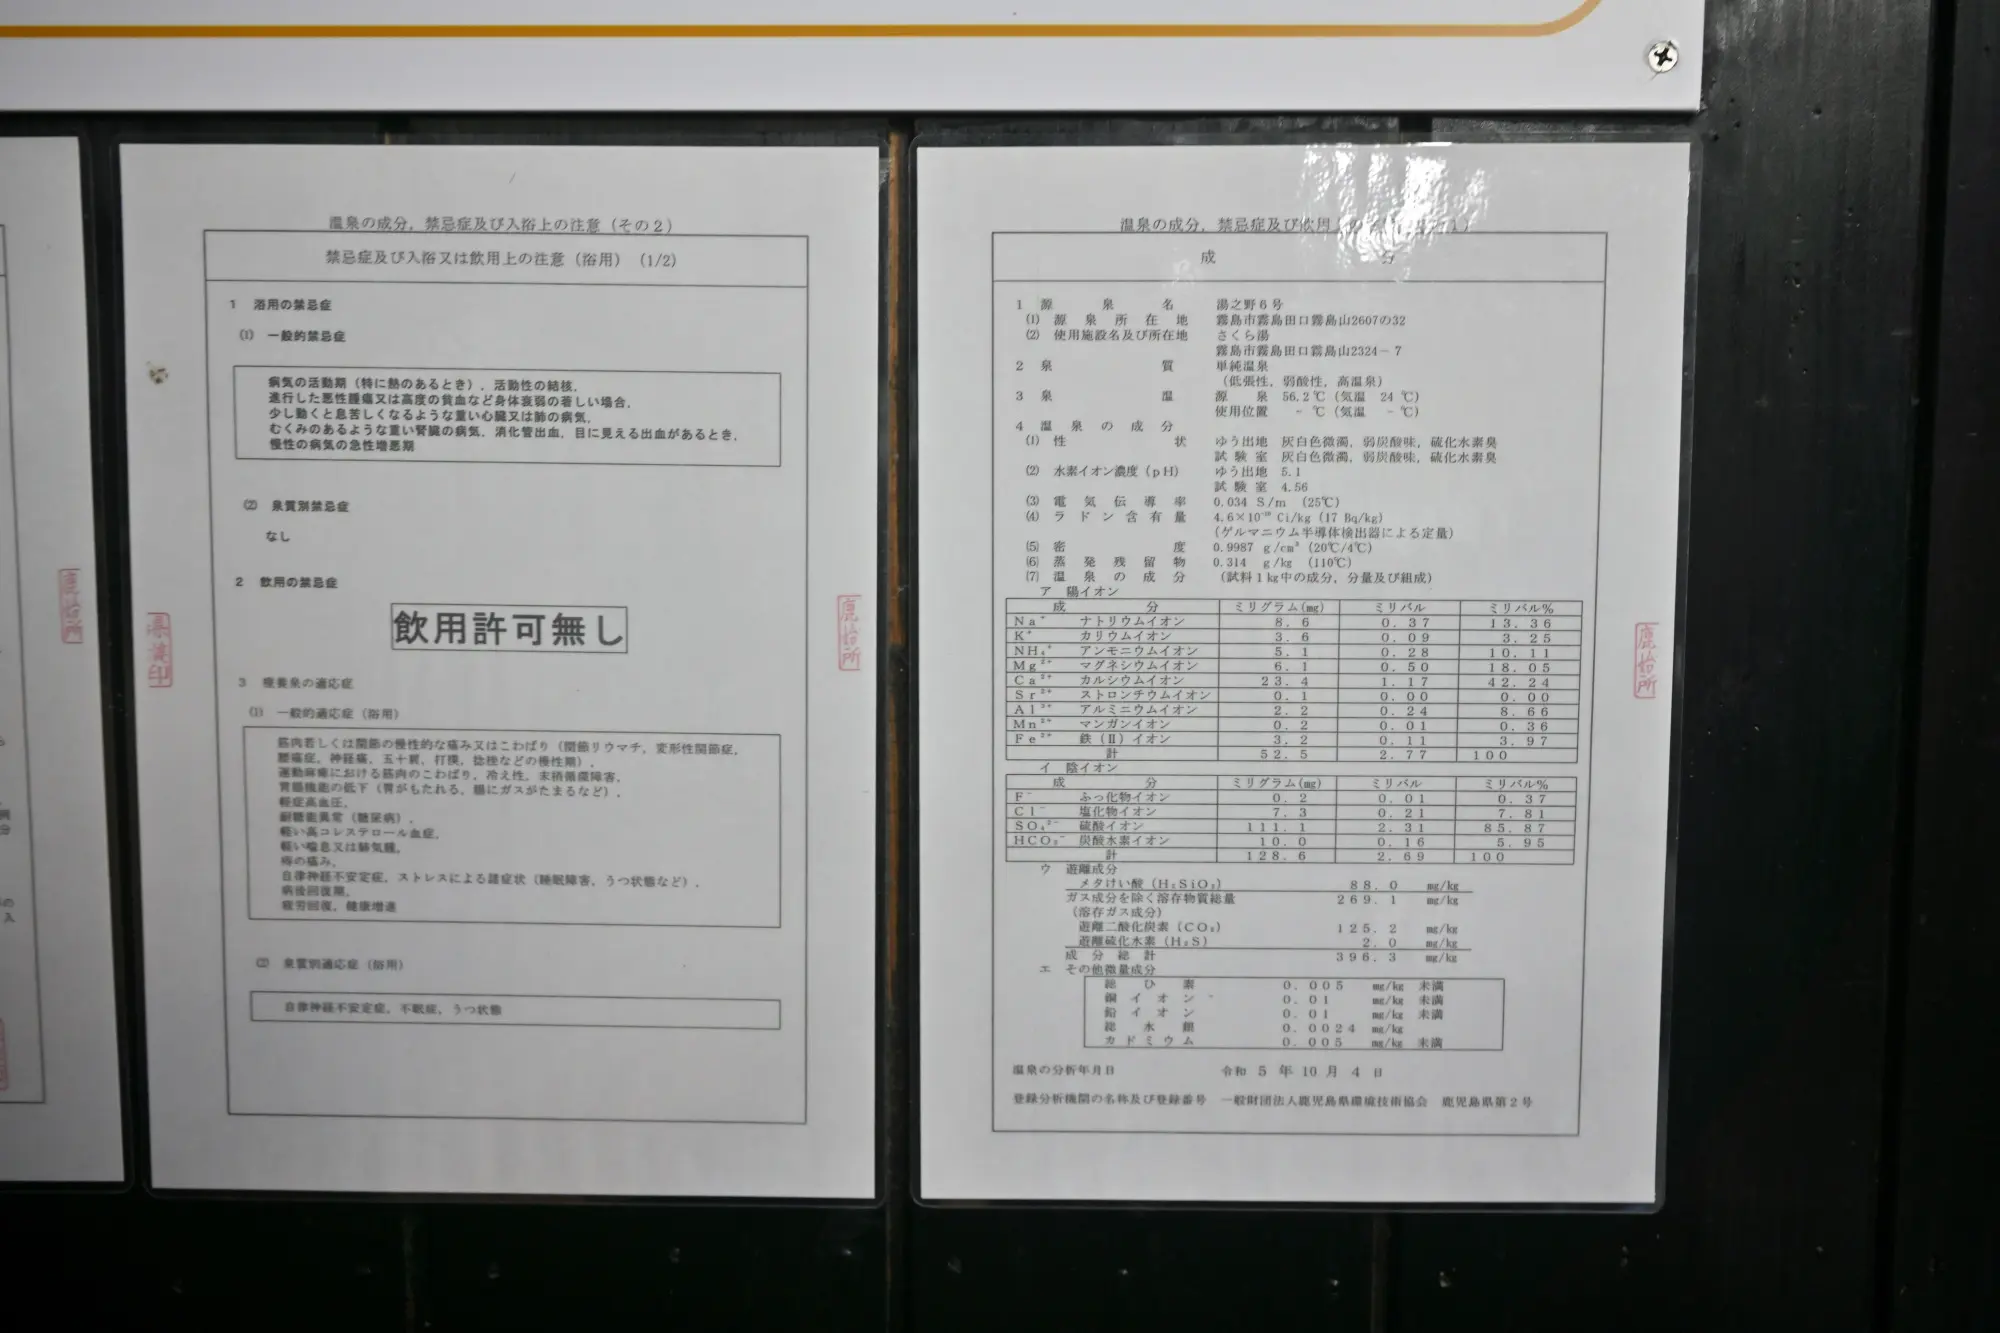 温泉の成分，禁忌症及び入浴上の注意（その２）
禁忌症及び入浴又は飲用上の注意（浴用）（1/2）
1 浴用の禁忌症
(1) 一般的禁忌症
病気の活動期（特に熱のあるとき），活動性の結核，
進行した悪性腫瘍又は高度の貧血など身体衰弱の著しい場合，
少し動くと息苦しくなるような重い心臓又は肺の病気，
むくみのあるような重い腎臓の病気，消化管出血，目に見える出血があるとき，
慢性の病気の急性増悪期
(2) 泉質別禁忌症
なし
2 飲用の禁忌症
飲用許可無し
3 療養泉の適応症
(1) 一般的適応症（浴用）
筋肉若しくは関節の慢性的な痛み又はこわばり（関節リウマチ，変形性関節症，
腰痛症，神経痛，五十肩，打撲，捻挫などの慢性期），
運動麻痺における筋肉のこわばり，冷え性，末梢循環障害，
胃腸機能の低下（胃がもたれる，腸にガスがたまるなど），
軽症高血圧，
耐糖能異常（糖尿病），
軽い高コレステロール血症，
軽い喘息又は肺気腫，
痔の痛み，
自律神経不安定症，ストレスによる諸症状（睡眠障害，うつ状態など），
病後回復期，
疲労回復，健康増進
(2) 泉質別適応症（浴用）
自律神経不安定症，不眠症，うつ状態
温泉の成分，禁忌症及び飲用
成 分
1 源泉名 湯之野６号
(1) 源泉所在地 霧島市霧島田口霧島山2607の32
(2) 使用施設名及び所在地 さくら湯
霧島市霧島田口霧島山2324－7
2 泉質 単純温泉
（低張性，弱酸性，高温泉）
3 泉温 源泉 56.2℃（気温 24 ℃）
使用位置 - ℃（気温 - ℃）
4 温泉の成分
(1) 性状 ゆう出地 灰白色微濁，弱炭酸味，硫化水素臭
試験室 灰白色微濁，弱炭酸味，硫化水素臭
(2) 水素イオン濃度（pH） ゆう出地 5.1
試験室 4.56
(3) 電気伝導率 0.034 S/m （25℃）
(4) ラドン含有量 4.6×10⁻¹⁰ Ci/kg（17 Bq/kg）
（ゲルマニウム半導体検出器による定量）
(5) 密度 0.9987 g/cm³（20℃/4℃）
(6) 蒸発残留物 0.314 g/kg （110℃）
(7) 温泉の成分 （試料１kg中の成分，分量及び組成）
ア 陽イオン
成分 ミリグラム(mg) ミリバル ミリバル%
Na⁺ ナトリウムイオン 8.6 0.37 13.36
K⁺ カリウムイオン 3.6 0.09 3.25
NH₄⁺ アンモニウムイオン 5.1 0.28 10.11
Mg²⁺ マグネシウムイオン 6.1 0.50 18.05
Ca²⁺ カルシウムイオン 23.4 1.17 42.24
Sr²⁺ ストロンチウムイオン 0.1 0.00 0.00
Al³⁺ アルミニウムイオン 2.2 0.24 8.66
Mn²⁺ マンガンイオン 0.2 0.01 0.36
Fe²⁺ 鉄（Ⅱ）イオン 3.2 0.11 3.97
計 52.5 2.77 100
イ 陰イオン
成分 ミリグラム(mg) ミリバル ミリバル%
F⁻ ふっ化物イオン 0.2 0.01 0.37
Cl⁻ 塩化物イオン 7.3 0.21 7.81
SO₄²⁻ 硫酸イオン 111.1 2.31 85.87
HCO₃⁻ 炭酸水素イオン 10.0 0.16 5.95
計 128.6 2.69 100
ウ 遊離成分
メタけい酸（H₂SiO₃） 88.0 mg/kg
ガス成分を除く溶存物質総量 269.1 mg/kg
（溶存ガス成分）
遊離二酸化炭素（CO₂） 125.2 mg/kg
遊離硫化水素（H₂S） 2.0 mg/kg
成分総計 396.3 mg/kg
エ その他微量成分
総ひ素 0.005 mg/kg 未満
銅イオン 0.01 mg/kg 未満
鉛イオン 0.01 mg/kg 未満
総水銀 0.0024 mg/kg
カドミウム 0.005 mg/kg 未満
温泉の分析年月日 令和 5 年 10 月 4 日
登録分析機関の名称及び登録番号 一般財団法人鹿児島県環境技術協会 鹿児島県第２号